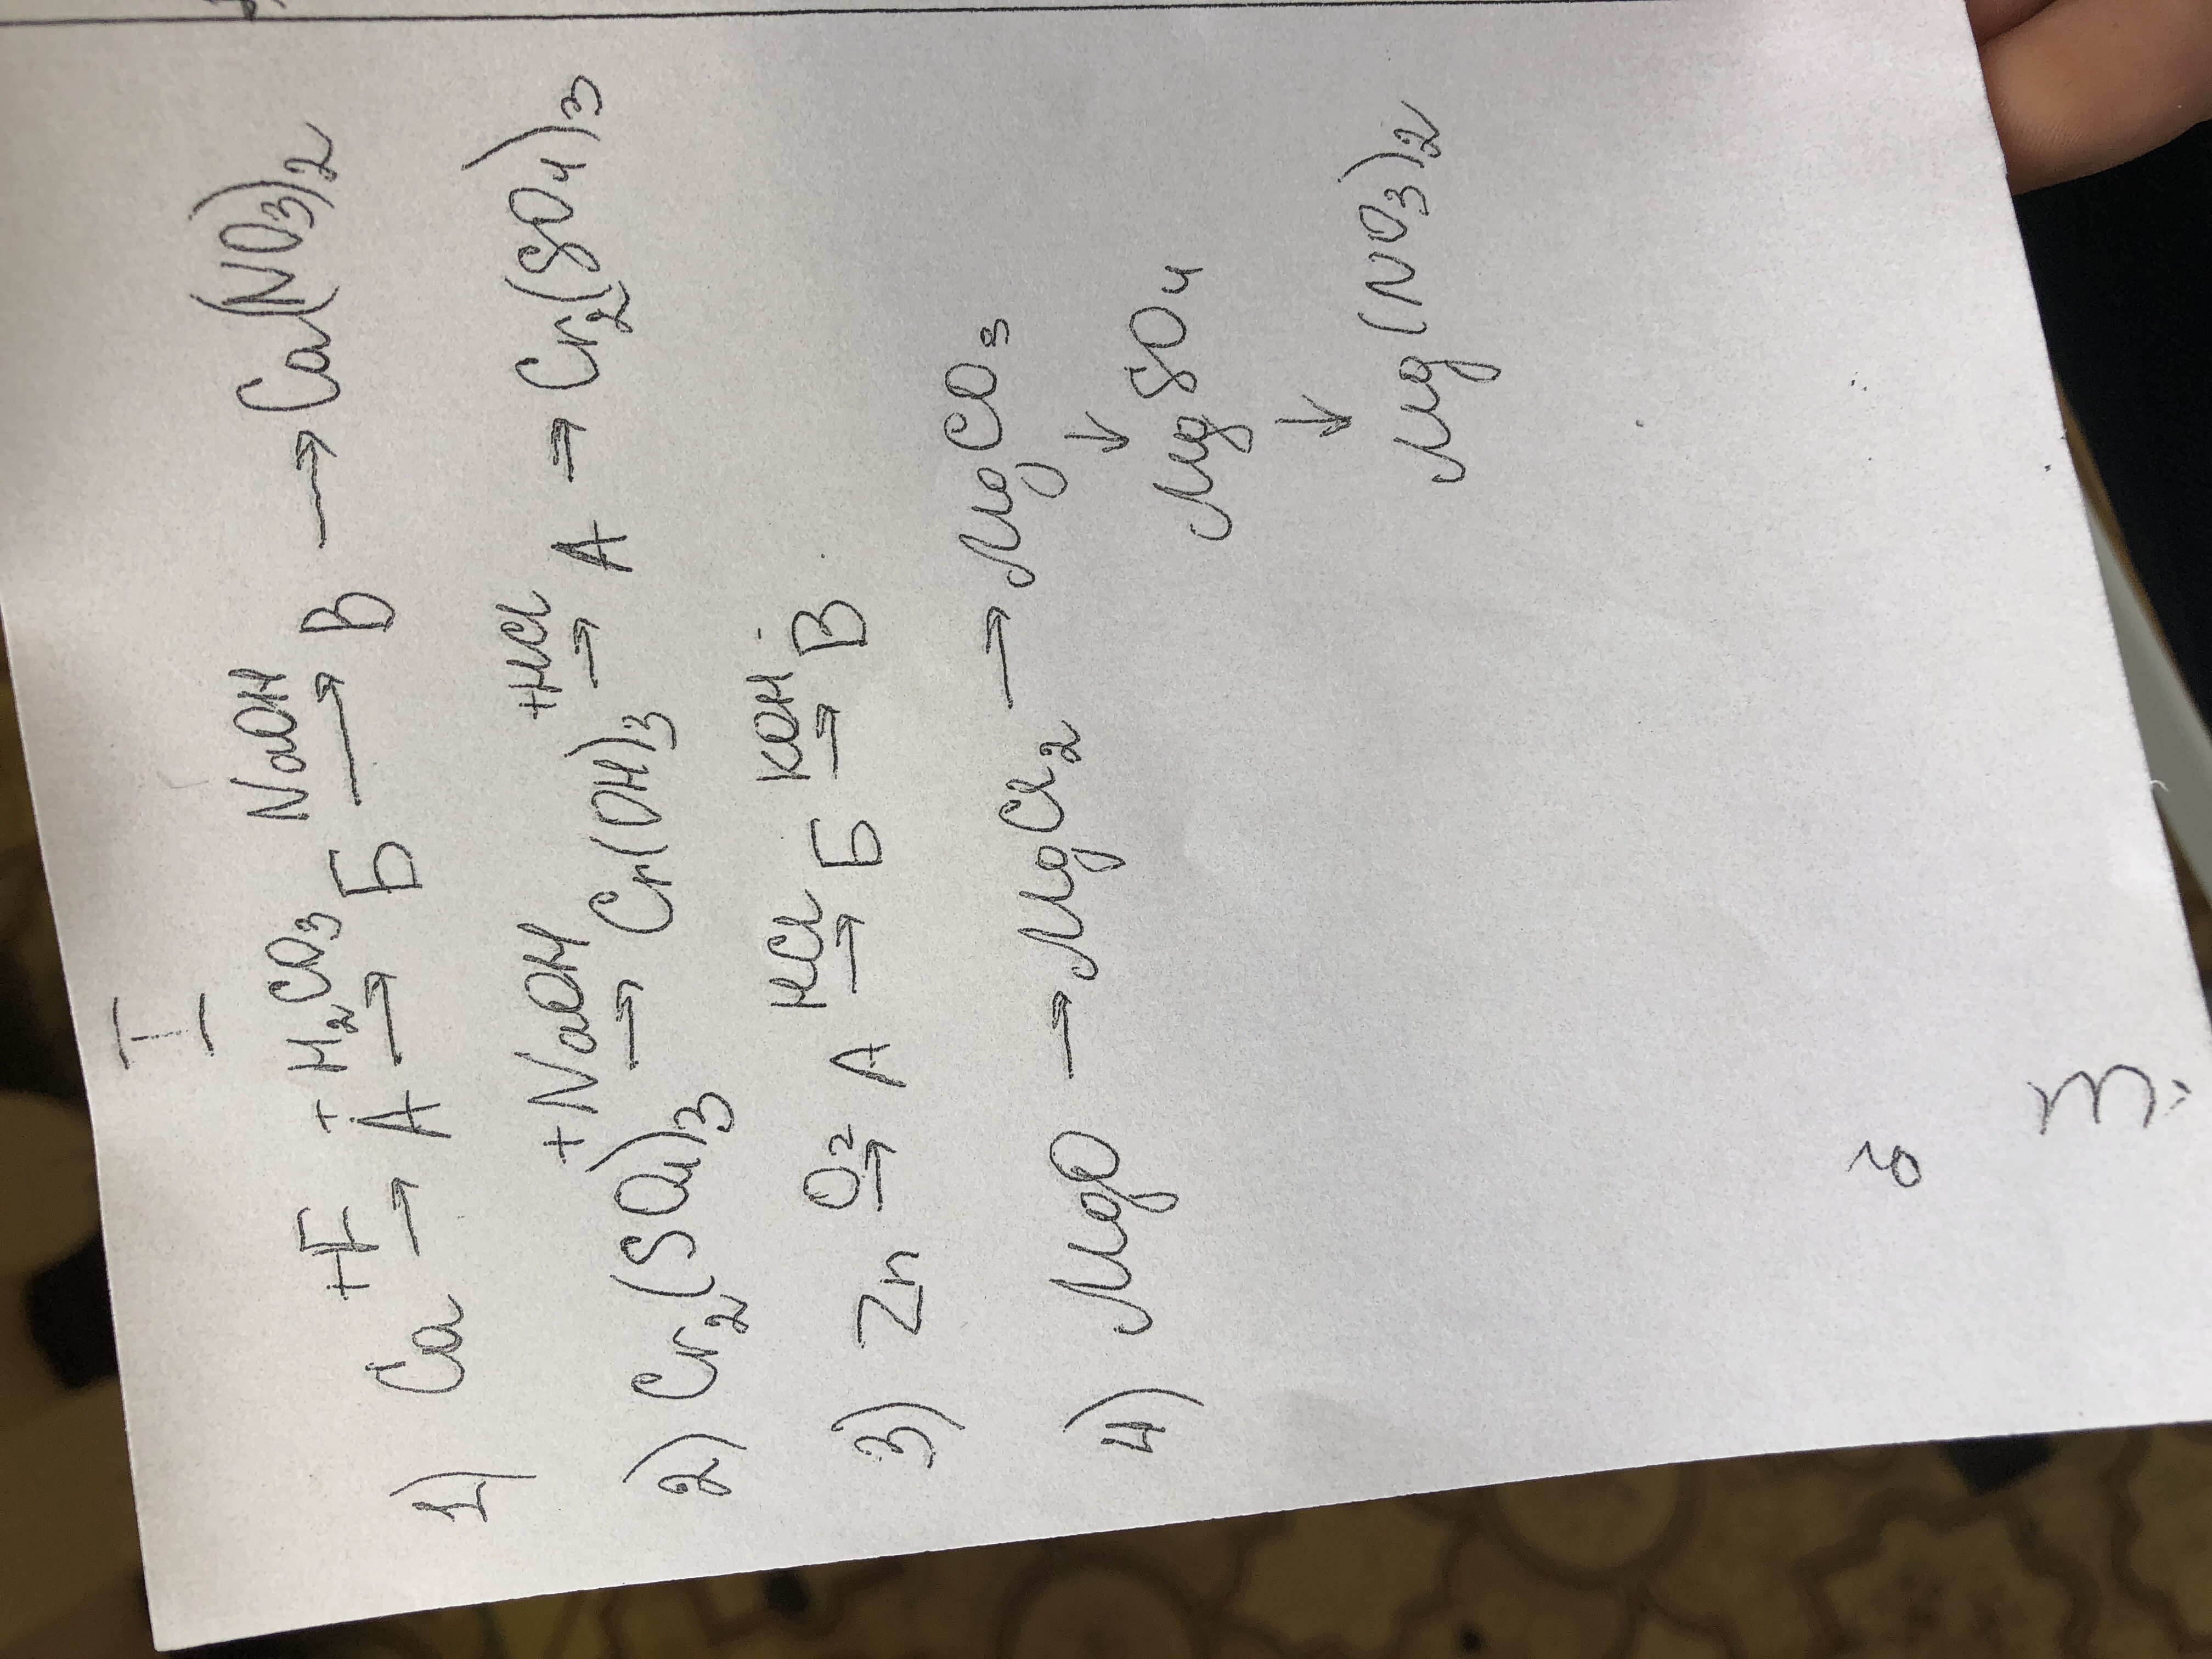 I
1) Ca +F → A +H2CO3 → Б NaOH → В → Ca(NO3)2
2) Cr2(SO4)3 +NaOH → Cr(OH)3 +HCl → A → Cr2(SO4)3
3) Zn O2 → A HCl → Б KOH → В
4) MgO → MgCl2 → MgCO3
↓
MgSO4
↓
Mg(NO3)2